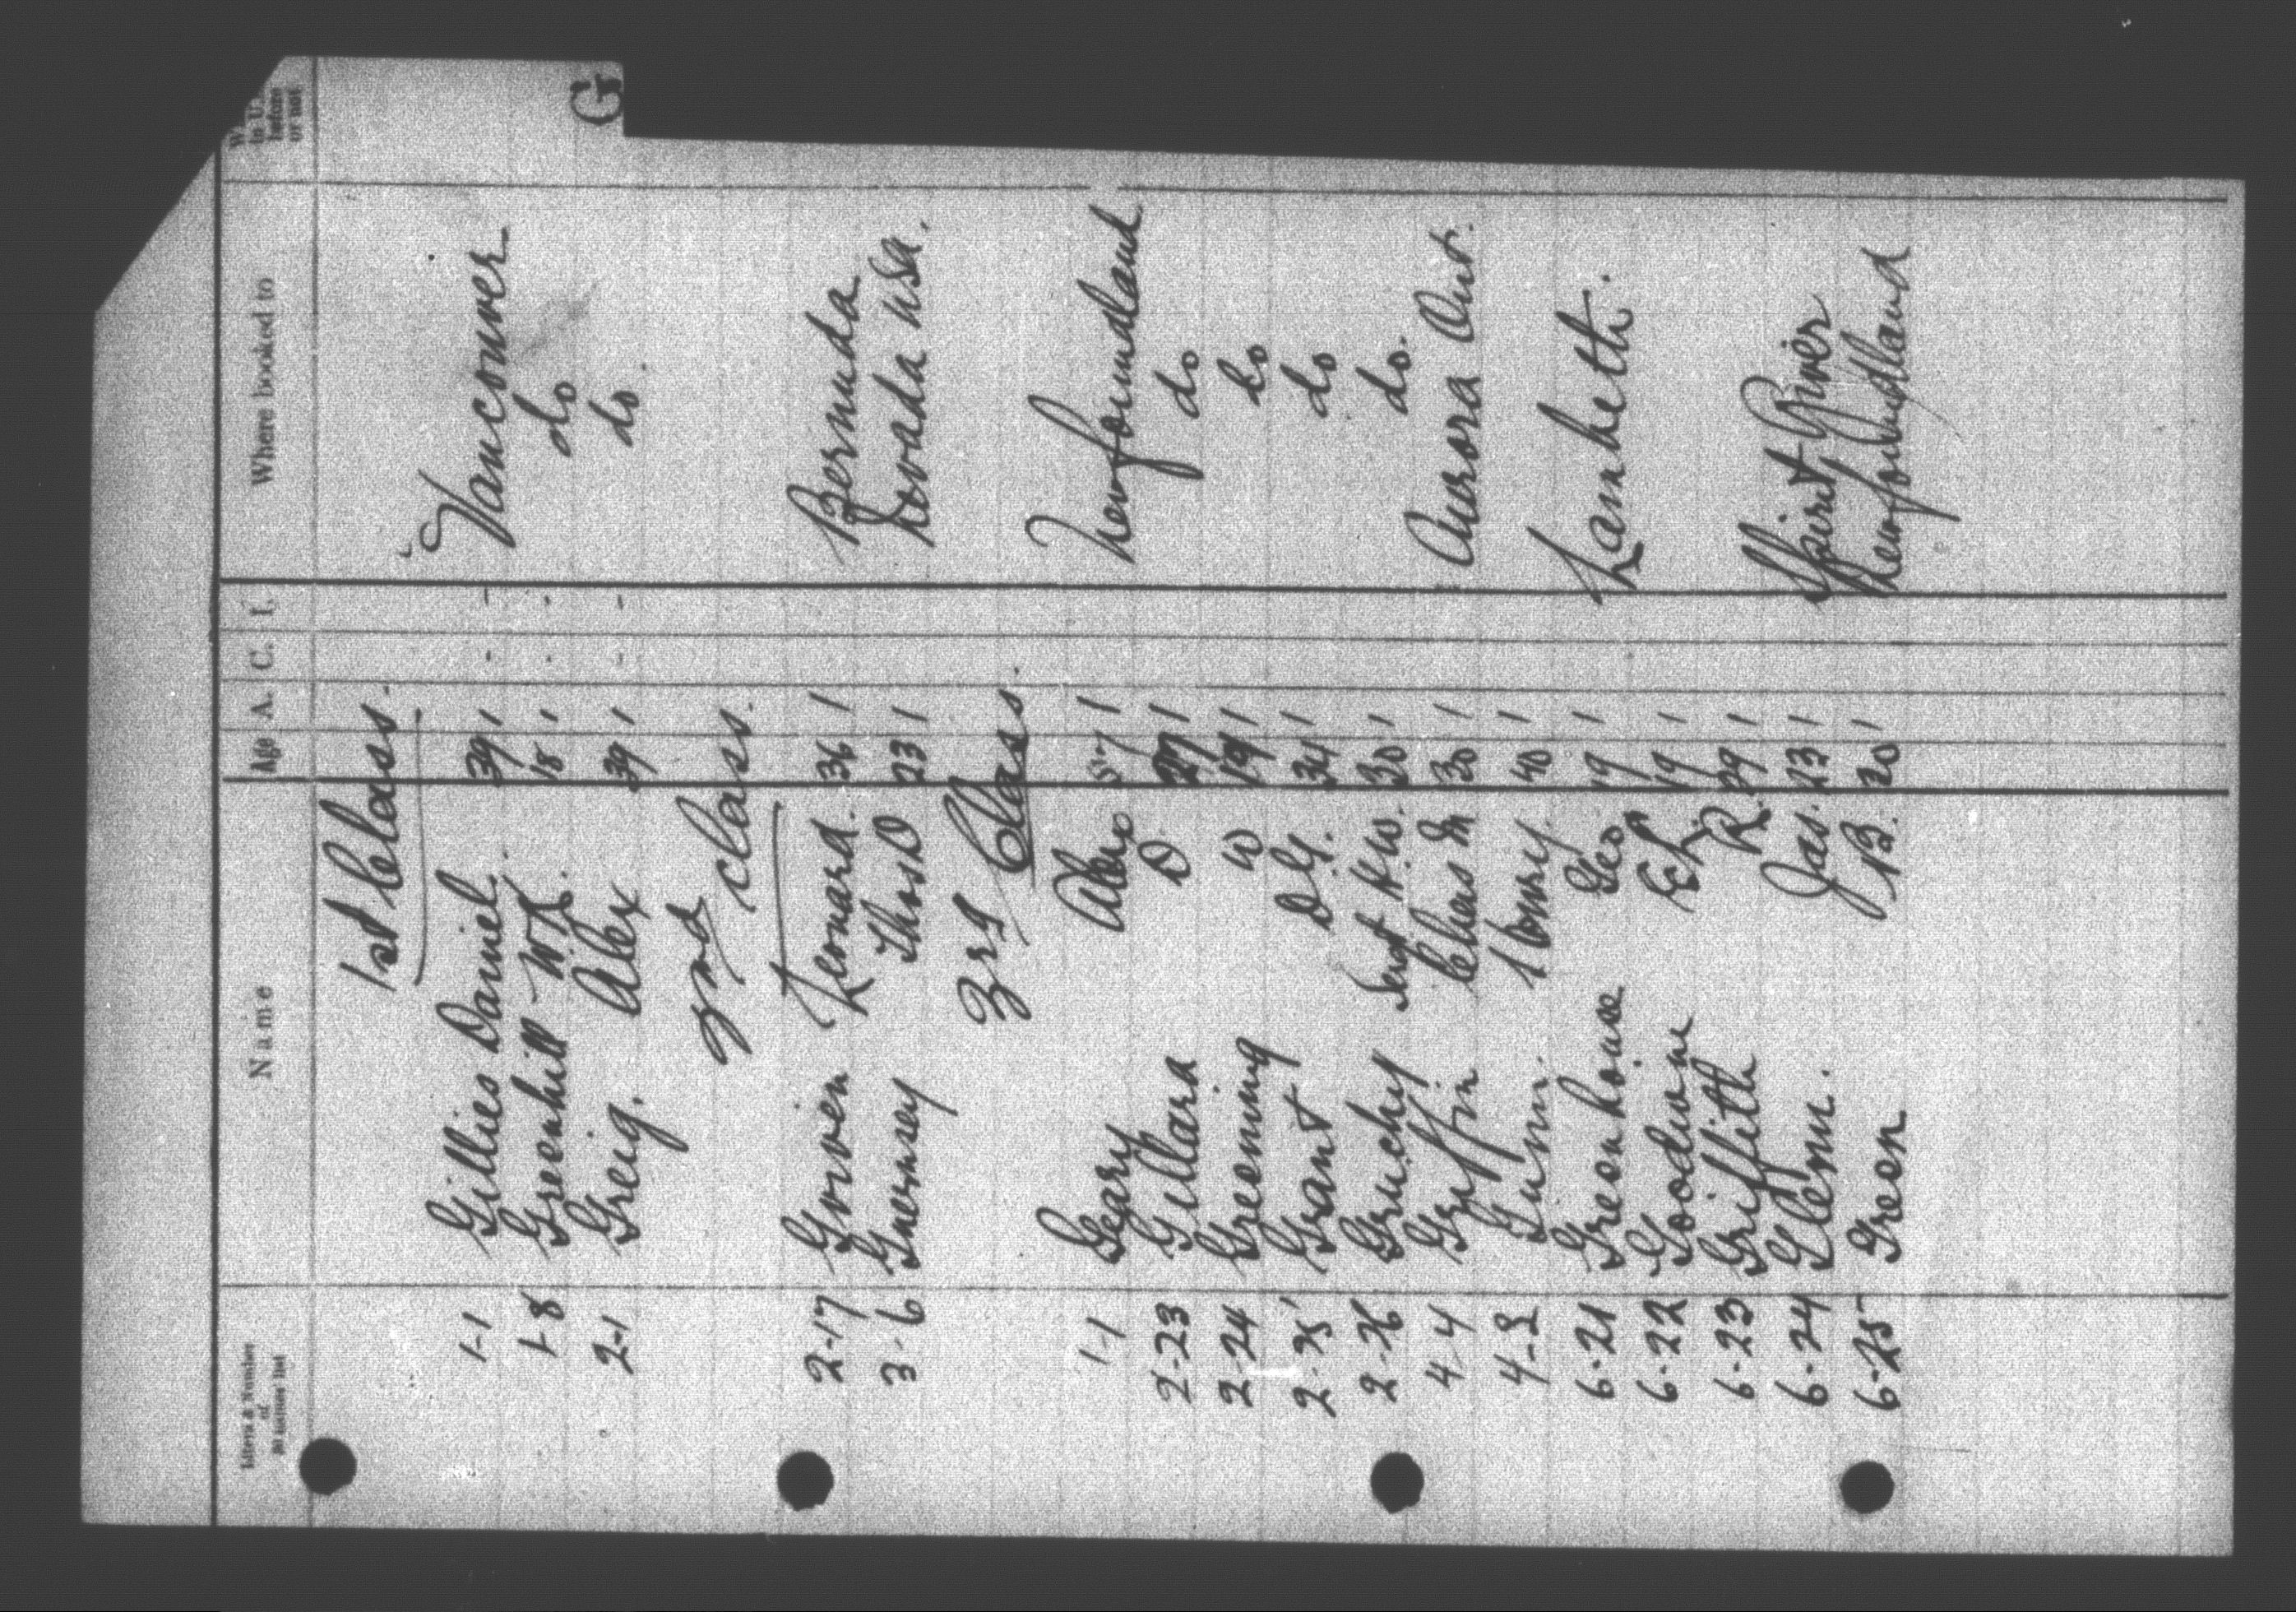 G
Letter & Number of 30 names list Name Age A. C. I. Where booked to W in U. before or not
1st Class.
1-1 Gillies Daniel. 39 1 - - Vancouver
1-8 Greenhill W. 18 1 - - do
2-1 Greig. Alex 39 1 - - do.
2nd class.
2-17 Gowen Leonard. 36 1 Bermuda
3-6 Guernsey Thos D 23 1 Nevada USA.
3rd Class.
1-1 Geary Alex 57 1 Newfoundland
2-23 Gillard D. 27 1 do
2-24 Greening W 19 1 do
2-25 Grant D.G. 34 1 do
2-26 Gruchy H.W. 30 1 do.
4-4 Griffin Chas M 30 1 Aurora Ont.
4-8 Gunn 40 1
6-21 Greenhouse Geo 19 1 Lambeth.
6-22 Goodwin 19 1
6-23 Griffith R. 29 1
6-24 Glenn. Jas. 23 1 Spirit River
6-25 Green J.B. 20 1 Newfoundland